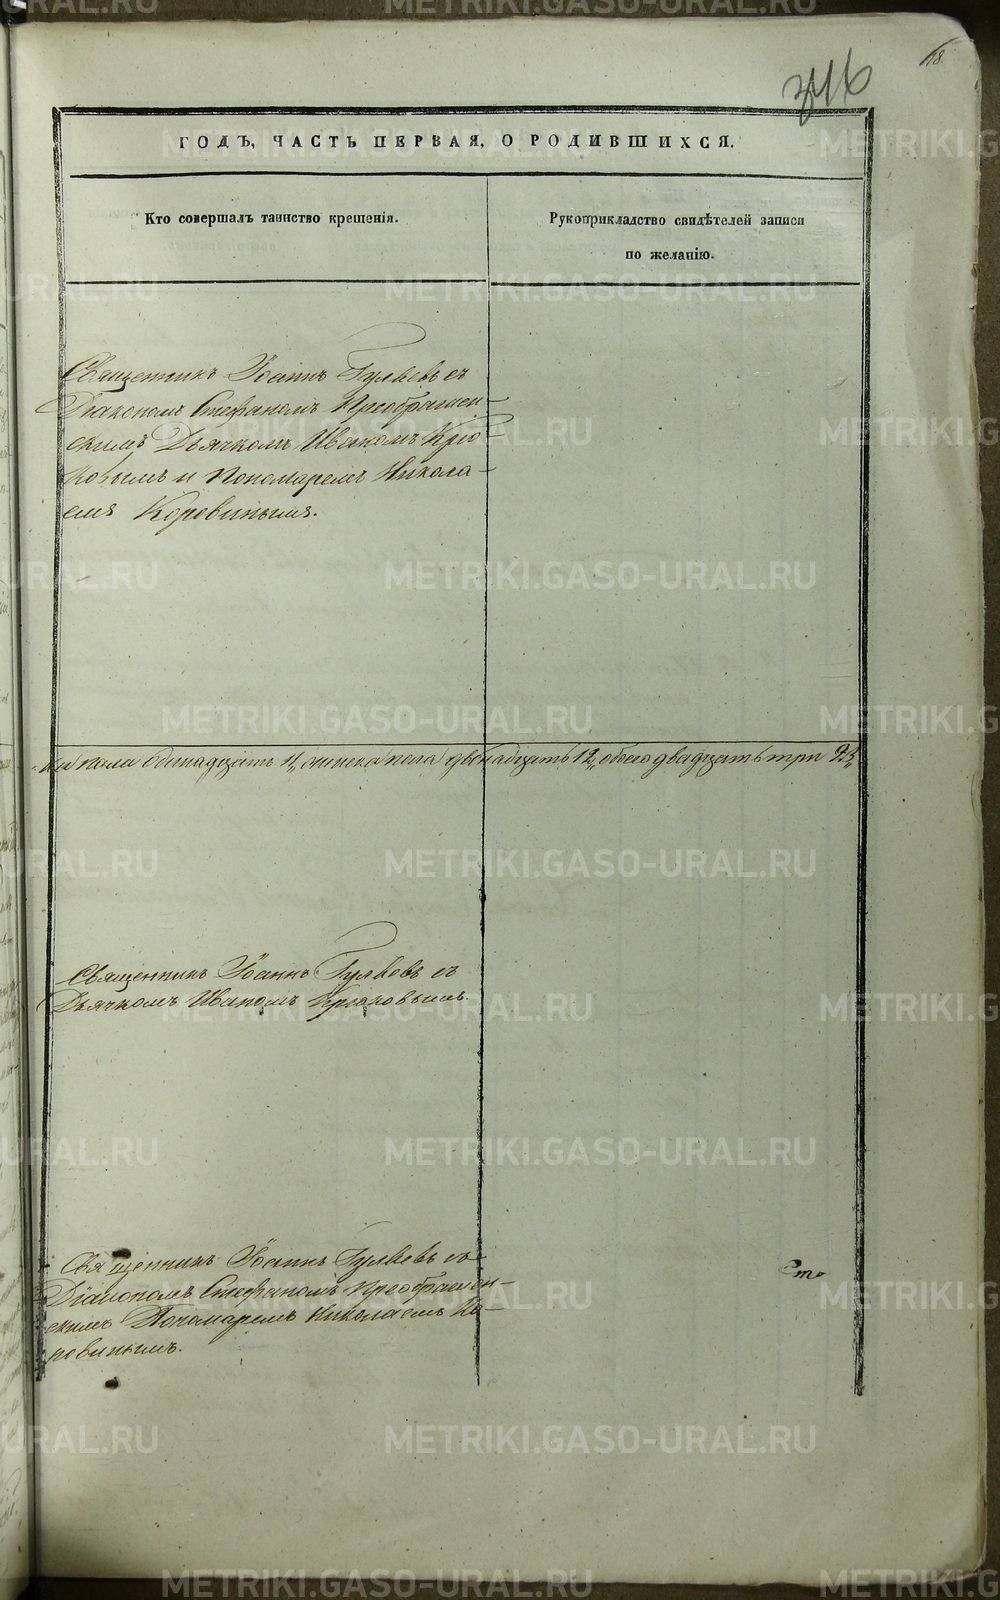 18.
346
ГОДЪ, ЧАСТЬ ПЕРВАЯ, О РОДИВШИХСЯ.
Кто совершалъ таинство крещенія.
Рукоприкладство свидѣтелей записи
по желанію.
Священникъ Іоаннъ Гуляевъ съ
Діакономъ Стефаномъ Преображен-
скимъ Дьячкомъ Иваномъ Крю-
ковымъ и Пономаремъ Никола-
емъ Коровинымъ.
пола одинадцать 11, женска пола двенадцать 12, обоего двадцать три 23
Священникъ Іоаннъ Гуляевъ съ
Дьячкомъ Иваномъ Крюковымъ.
Священникъ Іоаннъ Гуляевъ съ
Діакономъ Стефаномъ Преображен-
скимъ Пономаремъ Николаемъ Ко-
ровинымъ.
METRIKI.GASO-URAL.RU